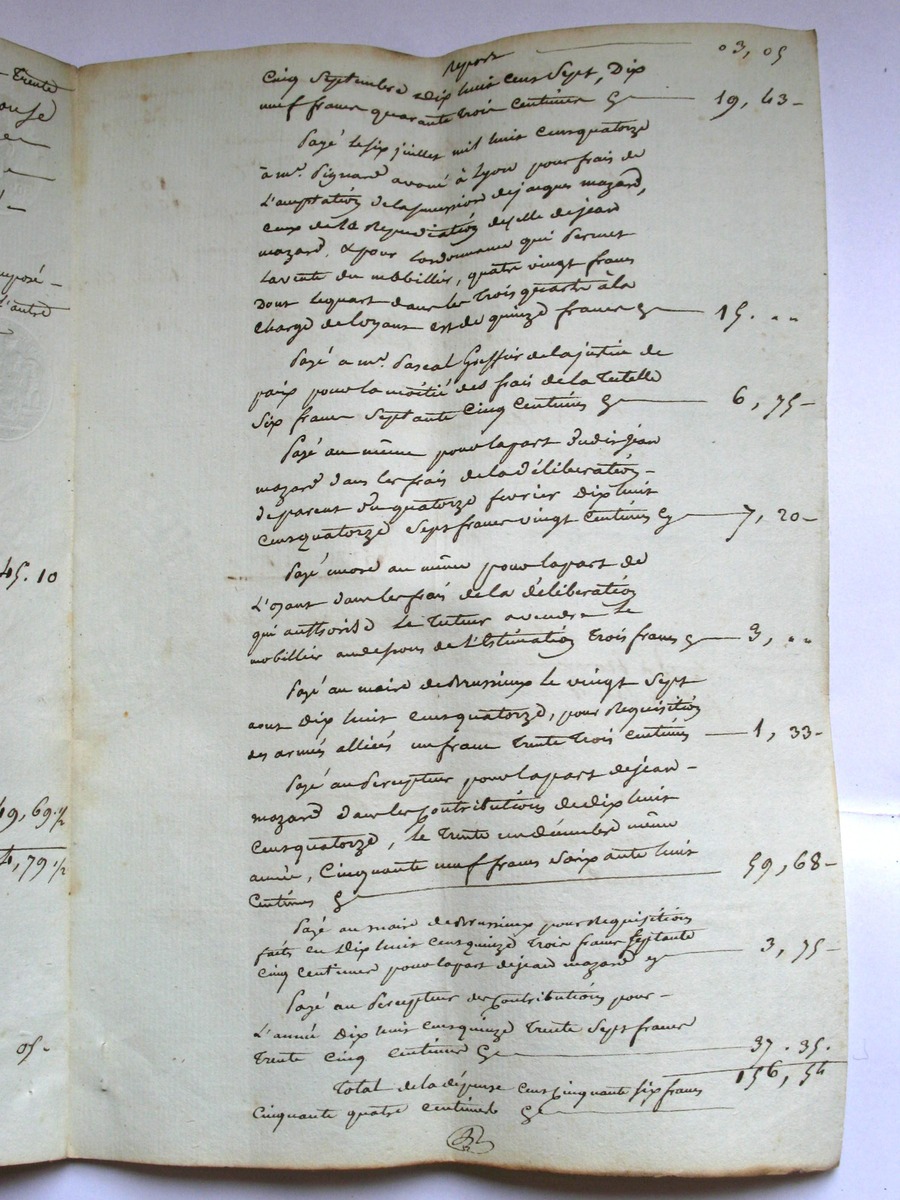 Trente
mposé –
l'autre
45. 10
49, 69. 1/2
4, 79 1/2
05 –
report 03, 05
Cinq Septembre dix huit cent sept, dix
neuf francs quarante trois centimes 19, 43 –
Payé le six juillet mil huit cent quatorze
à mr. Pignard avoué à Lyon pour frais de
L'acceptation de la succession de jacques mazard,
ceux de la Repudiation de celle de jean
mazard, & pour L'ordonnance qui Permet
La vente du mobillier, quatre vingt francs
Dont Le quart dans les Trois quarts à la
Charge de L'oyant est de quinze francs 15. „ „
Payé a mr. Pascal Greffier de la justice de
paix pour la moitié des frais de la Tutelle
Six francs Septante Cinq Centimes 6, 75 –
Payé au même pour la part dudit jean
mazard dans les frais de la déliberation
de parent du quatorze fevrier dix huit
Cent quatorze Sept francs vingt Centimes 7, 20 –
Payé encore au même pour la part de
L'oyant dans les frais de la déliberation
qui authorise Le Tuteur a vendre le
mobillier au dessous de L'Estimation Trois francs 3, „ „
Payé au maire de Brussieux le vingt Sept
aout Dix huit Cent quatorze, pour Requisition
des armées alliées un franc Trente Trois Centimes 1, 33 –
Payé au Percepteur pour la part de jean
mazard dans les Contributions de dix huit
Cent quatorze, le Trente un décembre même
année, Cinquante neuf francs Soixante huit
Centimes 59, 68 –
Payé au maire de Brussieux pour Requisitions
faits en Dix huit Cent quinze Trois francs Septante
Cinq Centimes pour la part de jean mazard 3, 75 –
Payé au Percepteur des Contributions pour
L'année Dix huit Cent quinze Trente Sept francs
Trente Cinq Centimes 37. 35.
Total de la dépense Cent Cinquante Six francs 156, 54
Cinquante quatre Centimes